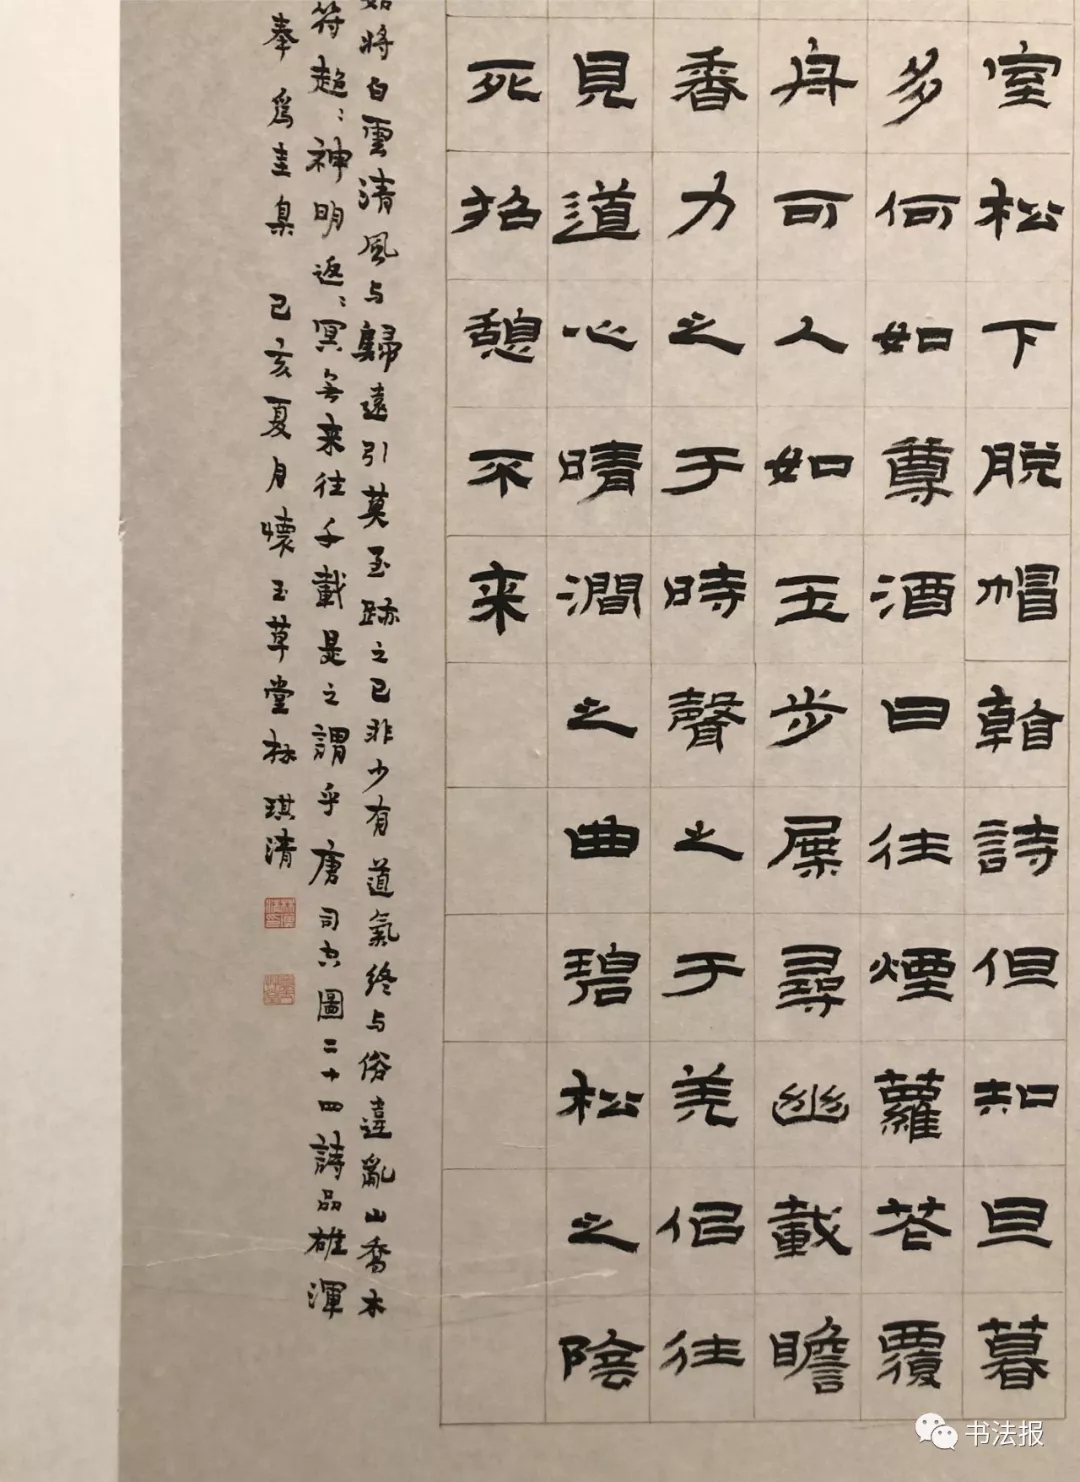 室松下脱帽看詩但知旦暮
多何如尊酒日往煙蘿花覆
舟可人如玉步屧尋幽載瞻
香力之于時聲之于羌侣往
見道心晴澗之曲碧松之陰
死招憩不来
將白雲清風与歸遠引莫至跡之已非少有道氣終与俗違亂山喬木
符超：神明返：冥無来往千載是之謂乎唐司空圖二十四詩品雄渾
奉為圭臬 己亥夏月懷玉草堂林琪清
书法报